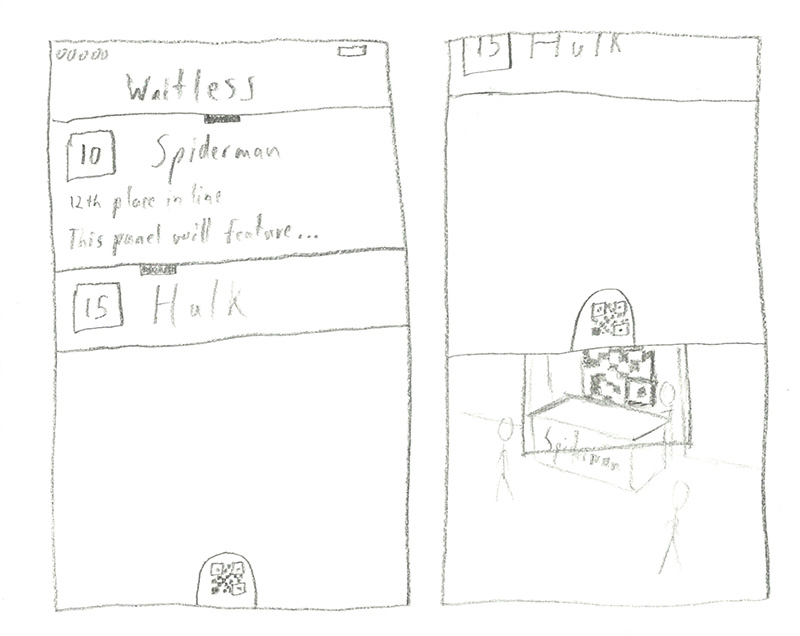 Waitless
10 Spiderman
12th place in line
This panel will feature...
15 Hulk
15 Hulk
Spiderman